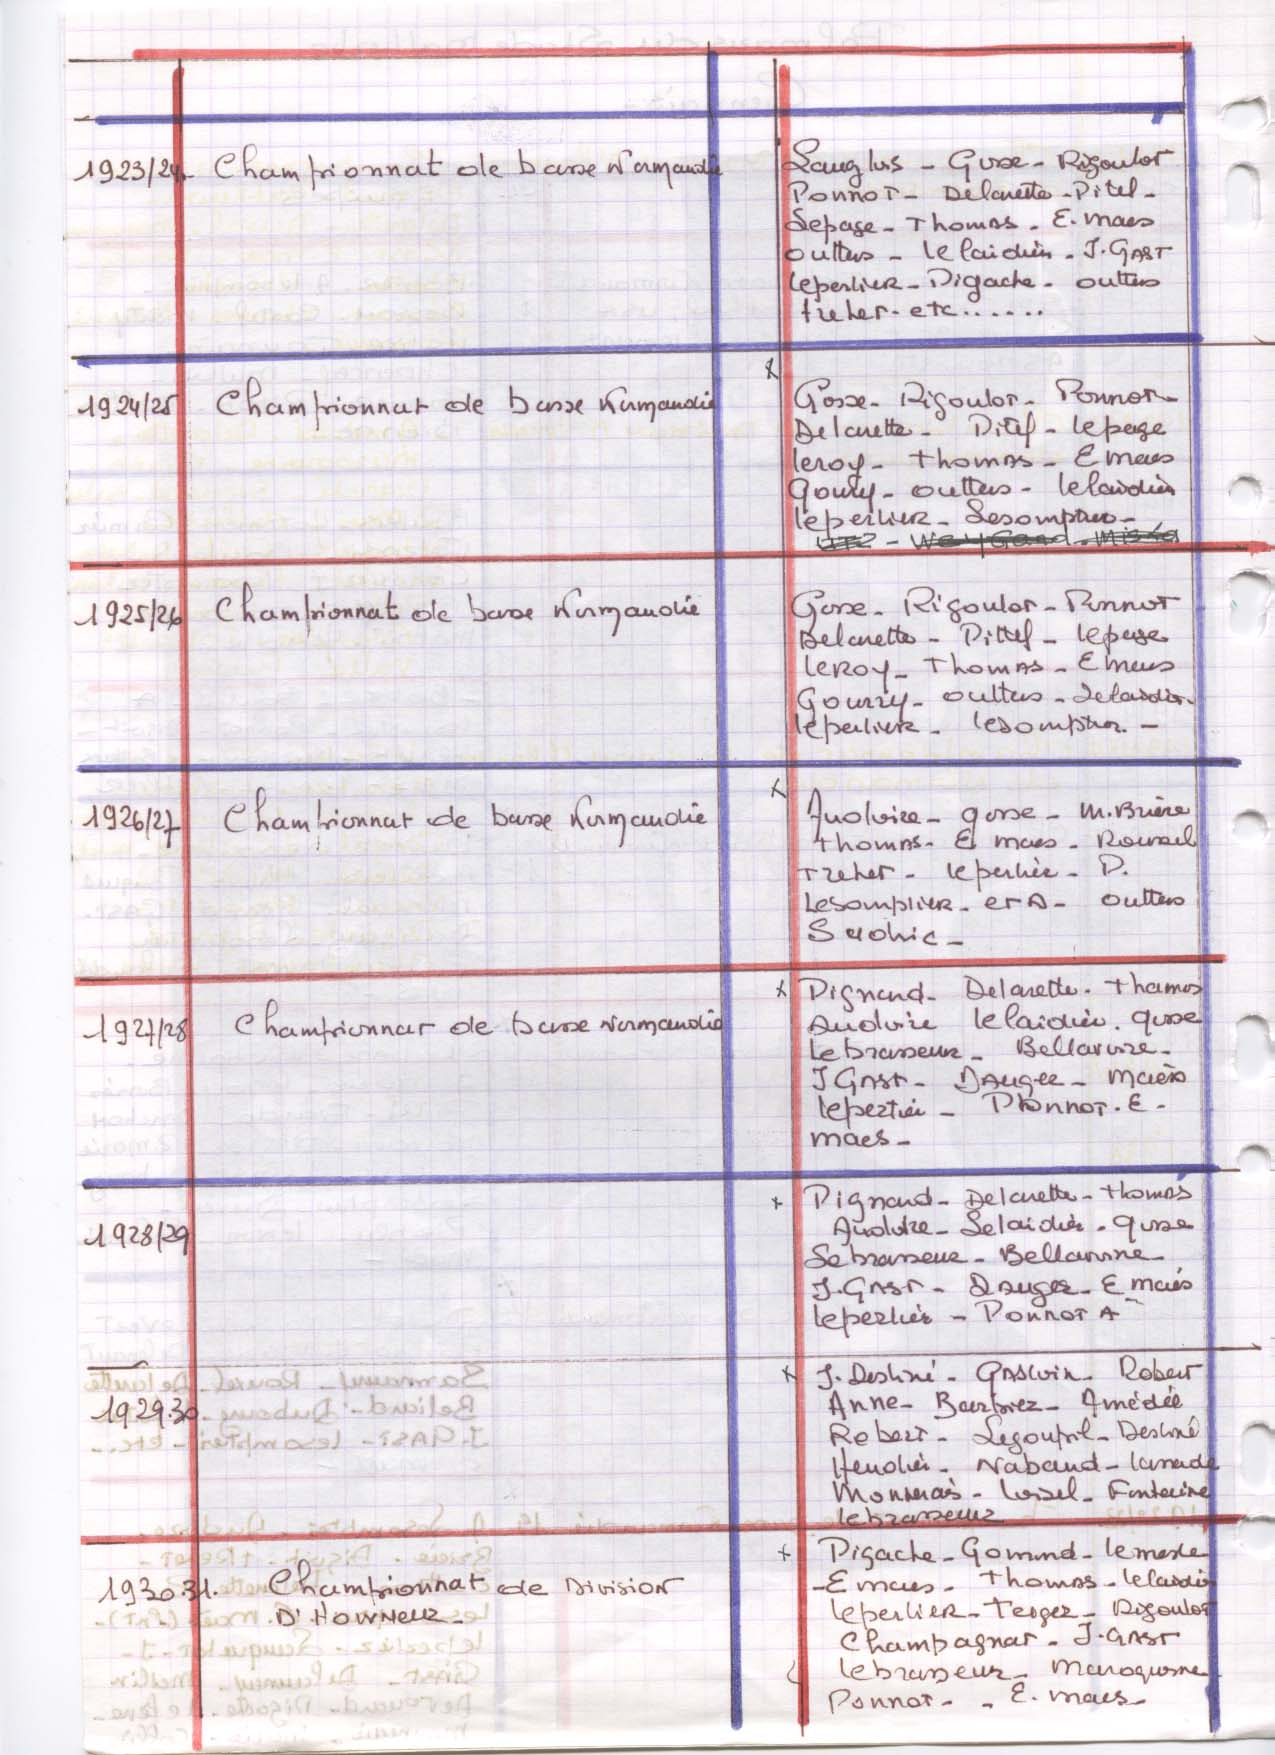 1923/24. Championnat de basse Normandie
Langlois - Gosse - Rigoulot
Ponnot - Delarette - Pitel -
Lepage - Thomas - E. maes
outters - le laidier - J. GAST
leperlier - Pigache - outters
treher - etc......
1924/25 Championnat de basse Normandie
Gosse - Rigoulot - Ponnot -
Delarette - Pitel - lepage
leroy - Thomas - E maes
Goury - outters - lelaidier
leperlier - Lesomptier -
1925/26 Championnat de basse Normandie
Gosse - Rigoulot - Ponnot
Delarette - Pittel - lepage
leROY - Thomas - E maes
Gourry - outters - Lelaidier
leperlier - lesomptier -
1926/27 Championnat de basse Normandie
x Audoire - gosse - M. Brière
Thomas - E maes - Roussel
Treher - leperlier - P.
Lesomplier - et A - outters
1927/28 Championnat de basse Normandie
x Pignand - Delarette - Thomas
Audoire lelaidier. gosse
lebrasseur - Bellavoine -
J GAST - DAuger - maës
lepertier - Ponnot - E -
maes -
1928/29
x Pignand - Delarette - Thomas
Audoire - Lelaidier - gosse
Lebrasseur - Bellavoine -
J. GAST - Dauger - E maës
leperlier - Ponnot A
1929.30
x J. Desliné - Robert
Anne - Barbiez - Amédée
Robert - Legoupil - Desliné
Nabaud -
Monnais - Loisel - Fontaine
lebrasseur
1930.31. Championnat de Division
D'Howneur -
x Pigache - Gomond - lemesle
- E maes - Thomas - lelaidier
leperlier - Terger - Rigoulot
Champagnat - J. GAST
lebrasseur -
Ponnot - - E. maes -